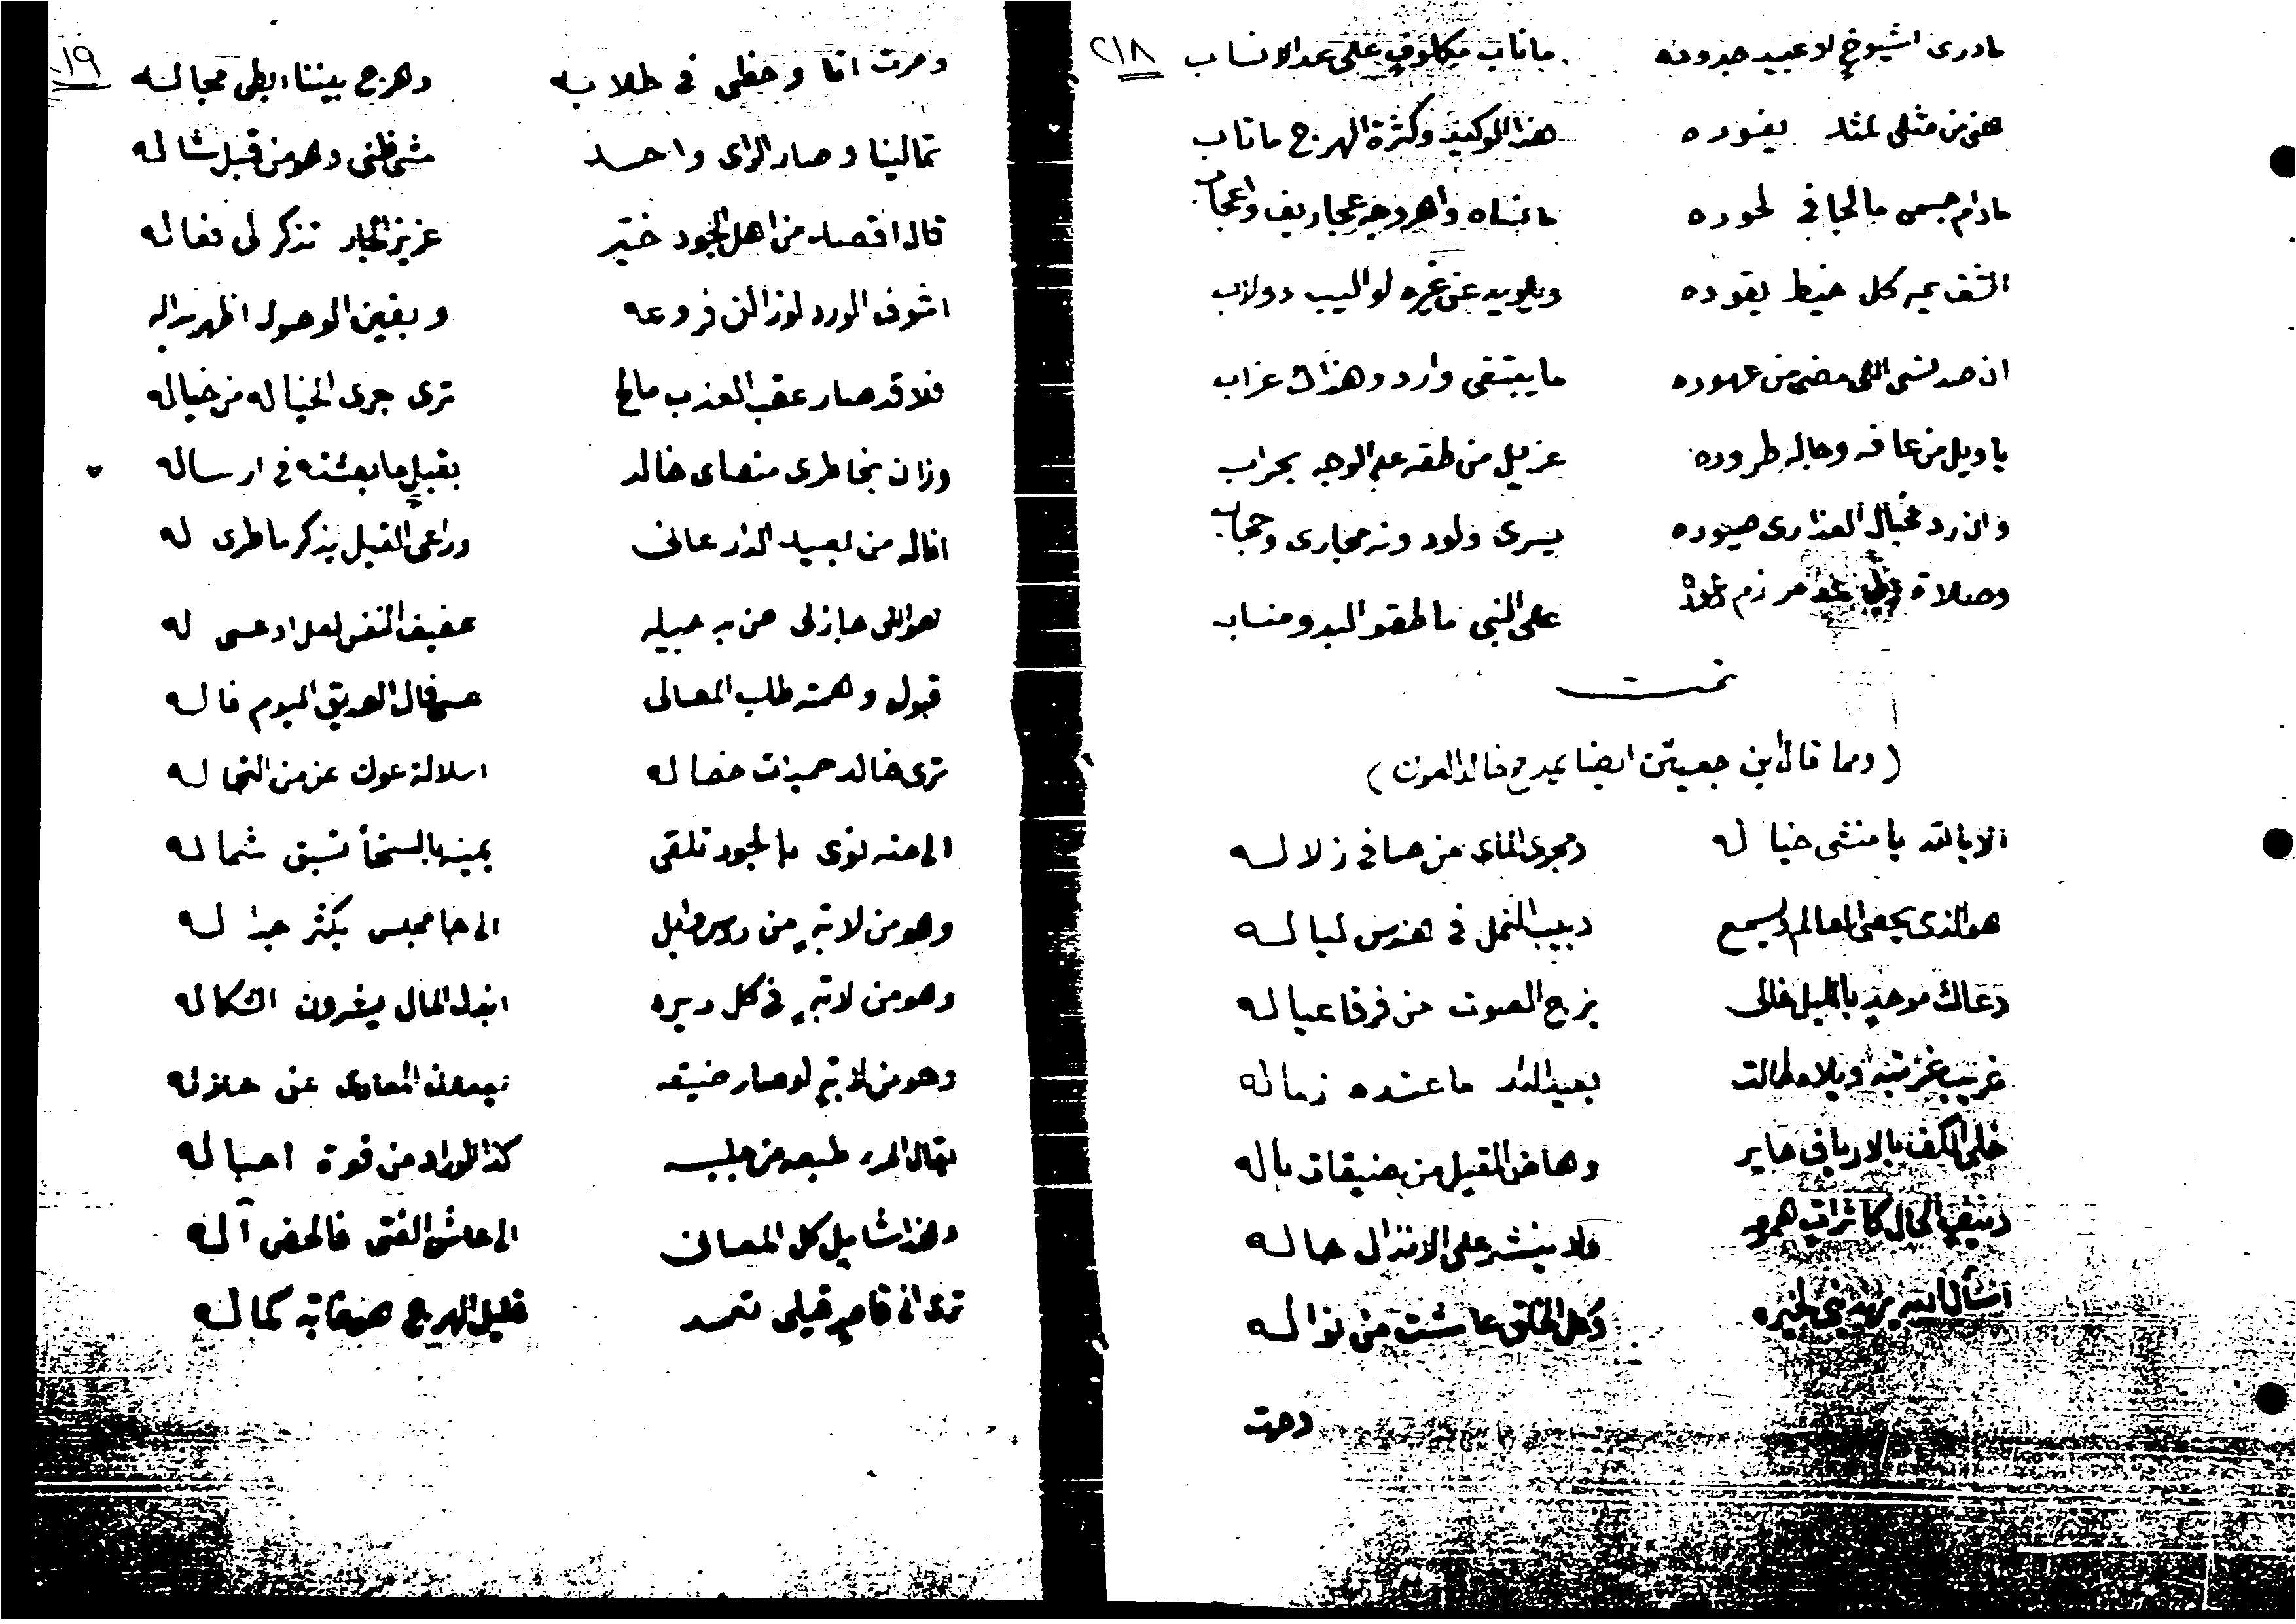 ٢١٨
مادرى اشيوخ او عبيد جدونه ماناب مكلوف على عد الانساب
هنى من مثلى لمثله يفوده هذا الوكيد وكثرة الهرج ماناب
مادام جسمى مالجا فى لحوده ماننساه واهروجه عجاريف واعجاب
كل خيط يقوده ويلويه عن غيره لواليب دولاب
ان صد نسى اللى مضى من عهوده ما يبتقى وارد وهذاك عزاب
يا ويل من عافه وجاله طروده عزيل من طقه على الوجه بحراب
وان رد مخيال العذارى صيوره يسرى ولود ونه مجارى وحجاب
وصلاة على النبى ما طقو البدو منساب
تمت
(ومما قال ابن جعيثن ايضا يمدح خالد العون)
الا يالله يا منشى خياله ومجرى الماى من صافى زلاله
هو الذى يحصى العالم ويسمع دبيب النمل فى هندس لياله
دعاك موحد بالليل خالى يزج الصوت من فرقا عياله
غريب غربته وبلاه طالت بعيد الدار ما عنده زماله
خلى الكف بالارياف حاير وهاض القيل من ضيقات باله
دنيف الحال كاثرات همومه ولا ينشر على الانذال حاله
انشال الله يهدينى لخيره وكل الخلق عاشت من نواله
وصرت
١٩
وصرت انا وحظى فى طلابه وهرج بيننا ابطى مجاله
تمالينا وصار الراى واحد مشى ظنى وهو من قبل شاله
قال اقصد من اهل الجود خير عزيز الجار تذكر لى فعاله
اشوف الورد لوزالن فروعه وبقين الوصول اظهر بداله
فلا قد صار عقب العذب مالح ترى جرى الخيا له من خياله
وزان بخاطرى منصاى خالد بقيل ما بعثته فى ارساله
اناله من بعيد الدار عانى وراعى القيل يذكر ماطرى له
هو اللى جاز لى من به جبيله عفيف النفس لعل اوعسى له
قبول وهمته طلب المعالى عسى فال الصديق اليوم فاله
ترى خالد حميدات خصاله اسلالة عون عز من التجا له
الى منه نوى بالجود تلقى يمينه بالسخا تسبق شماله
وهو من لابته من روس وايل الى جا مجلس يكثر جداله
وهو من لابته فى كل ديره ابذل المال يشرون الشكاله
وهو من لابته لو صار ضيقه يجدعون المعادى عن حلاله
يقال المرء طبعه من جليسه كذا الاوراد من قوة احباله
وهذا شايل كل المعانى الى عاش الفتى فالحض آله
ترى انى قاصر قيلى تعمد قليل الهرج صفاته كماله